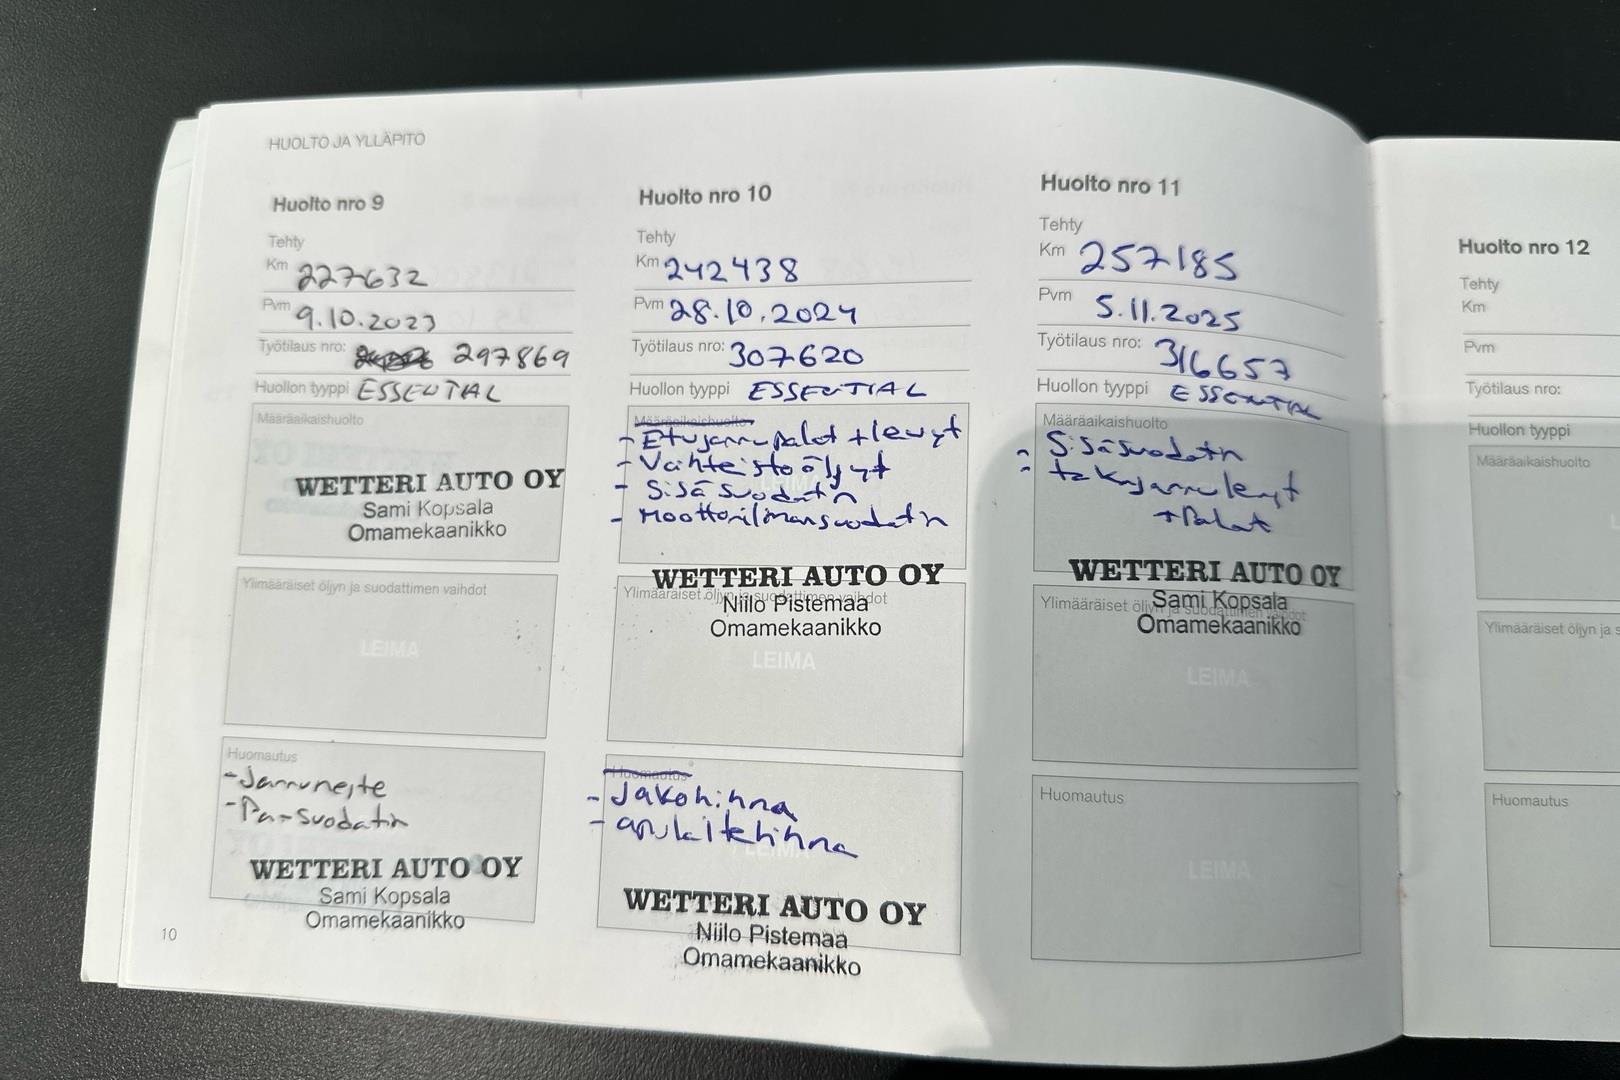 HUOLTO JA YLLÄPITO
Huolto nro 9
Tehty
Km 227632
Pvm 9.10.2023
Työtilaus nro: 297869
Huollon tyyppi ESSENTIAL
Määräaikaishuolto
WETTERI AUTO OY
Sami Kopsala
Omamekaanikko
Ylimääräiset öljyn ja suodattimen vaihdot
LEIMA
Huomautus
- Jarruneste
- Pa-suodatin
WETTERI AUTO OY
Sami Kopsala
Omamekaanikko
10
Huolto nro 10
Tehty
Km 242438
Pvm 28.10.2024
Työtilaus nro: 307620
Huollon tyyppi ESSENTIAL
Määräaikaishuolto
- Etujarrupalat + levyt
- Vaihteistoöljyt
- Sisäsuodatin
- Moottorilmansuodatin
LEIMA
WETTERI AUTO OY
Ylimääräiset öljyn ja suodattimen vaihdot
Niilo Pistemaa
Omamekaanikko
LEIMA
Huomautus
- Jakohihna
- apulaitehihna
LEIMA
WETTERI AUTO OY
Niilo Pistemaa
Omamekaanikko
Huolto nro 11
Tehty
Km 257185
Pvm 5.11.2025
Työtilaus nro: 316657
Huollon tyyppi ESSENTIAL
Määräaikaishuolto
- Sisäsuodatin
- takajarrulevyt
+ Palat
WETTERI AUTO OY
Ylimääräiset öljyn ja suodattimen vaihdot
Sami Kopsala
Omamekaanikko
LEIMA
Huomautus
LEIMA
Huolto nro 12
Tehty
Km
Pvm
Työtilaus nro:
Huollon tyyppi
Määräaikaishuolto
Ylimääräiset öljyn ja s
Huomautus